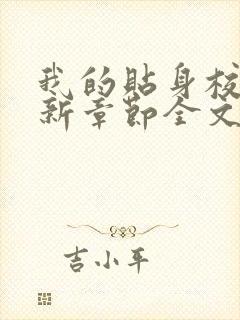 我的贴身校
新章节全文
吉小平